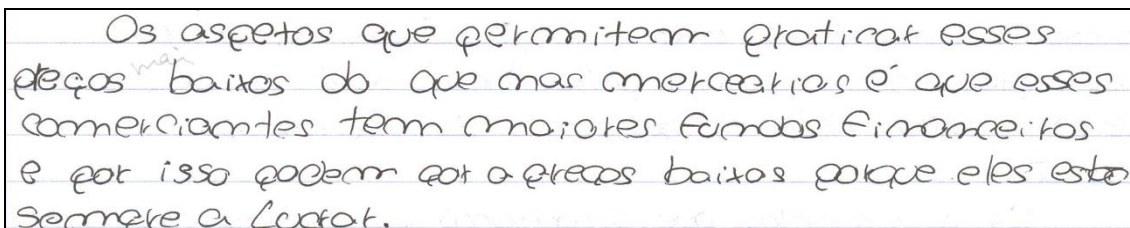 Os aspetos que permitem praticar esses
preços mais baixos do que nas mercearias é que esses
comerciantes tem maiores fundos financeiros
e por isso podem por a preços baixos porque eles estão
sempre a lucrar.